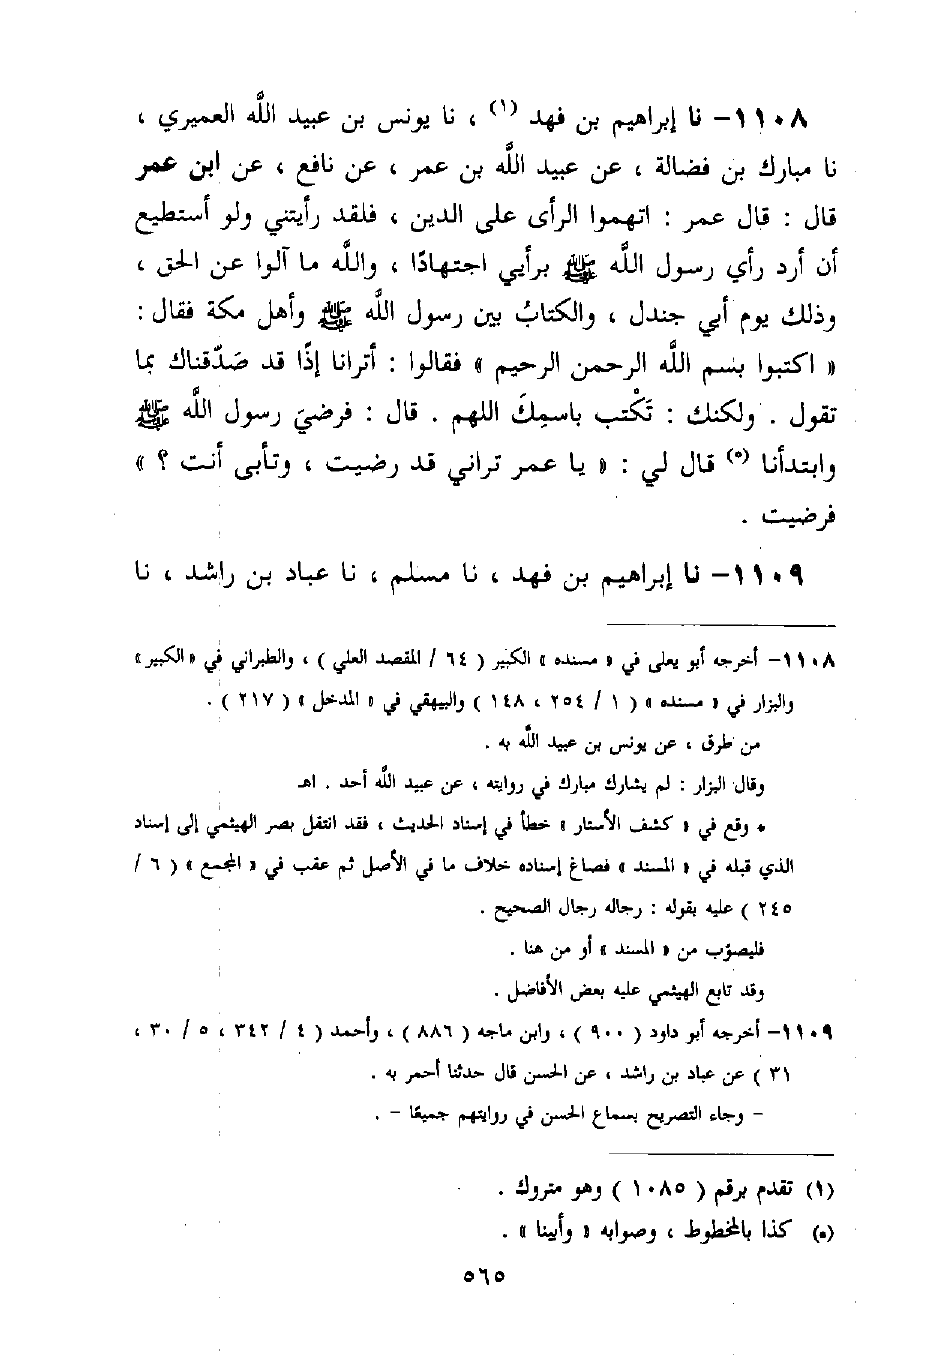 ١١٠٨- نا إبراهيم بن فهد (١) ، نا يونس بن عبيد اللَّه العميري ،
نا مبارك بن فضالة ، عن عبيد اللَّه بن عمر ، عن نافع ، عن ابن عمر
قال : قال عمر : اتهموا الرأى على الدين ، فلقد رأيتني ولو أستطيع
أن أرد رأي رسول اللَّه ﷺ برأيي اجتهادًا ، واللَّه ما آلوا عن الحق ،
وذلك يوم أبي جندل ، والكتابُ بين رسول اللَّه ﷺ وأهل مكة فقال :
« اكتبوا بسم اللَّه الرحمن الرحيم » فقالوا : أترانا إذًا قد صَدّقناك بما
تقول . ولكنك : تَكْتب باسمِكَ اللهم . قال : فرضيَ رسول اللَّه ﷺ
وابتدأنا (٥) قال لي : « يا عمر تراني قد رضيت ، وتأبى أنت ؟ »
فرضيت .
١١٠٩- نا إبراهيم بن فهد ، نا مسلم ، نا عباد بن راشد ، نا
١١٠٨- أخرجه أبو يعلى في « مسنده » الكبير ( ٦٤ / المقصد العلي ) ، والطبراني في «الكبير»
والبزار في « مسنده » ( ١ / ٢٥٤ ، ١٤٨ ) والبيهقي في « المدخل » ( ٢١٧ ) .
من طرق ، عن يونس بن عبيد اللَّه به .
وقال البزار : لم يشارك مبارك في روايته ، عن عبيد اللَّه أحد . اهـ
* وقع في « كشف الأستار » خطأ في إسناد الحديث ، فقد انتقل بصر الهيثمي إلى إسناد
الذي قبله في « المسند » فصاغ إسناده خلاف ما في الأصل ثم عقب في « المجمع » ( ٦ /
٢٤٥ ) عليه بقوله : رجاله رجال الصحيح .
فليصوّب من « المسند » أو من هنا .
وقد تابع الهيثمي عليه بعض الأفاضل .
١١٠٩- أخرجه أبو داود ( ٩٠٠ ) ، وابن ماجه ( ٨٨٦ ) ، وأحمد ( ٤ / ٣٤٢ ، ٥ / ٣٠ ،
٣١ ) عن عباد بن راشد ، عن الحسن قال حدثنا أحمر به .
- وجاء التصريح بسماع الحسن في روايتهم جميعًا - .
(١) تقدم برقم ( ١٠٨٥ ) وهو متروك .
(٥) كذا بالمخطوط ، وصوابه « وأبينا » .
٥٦٥